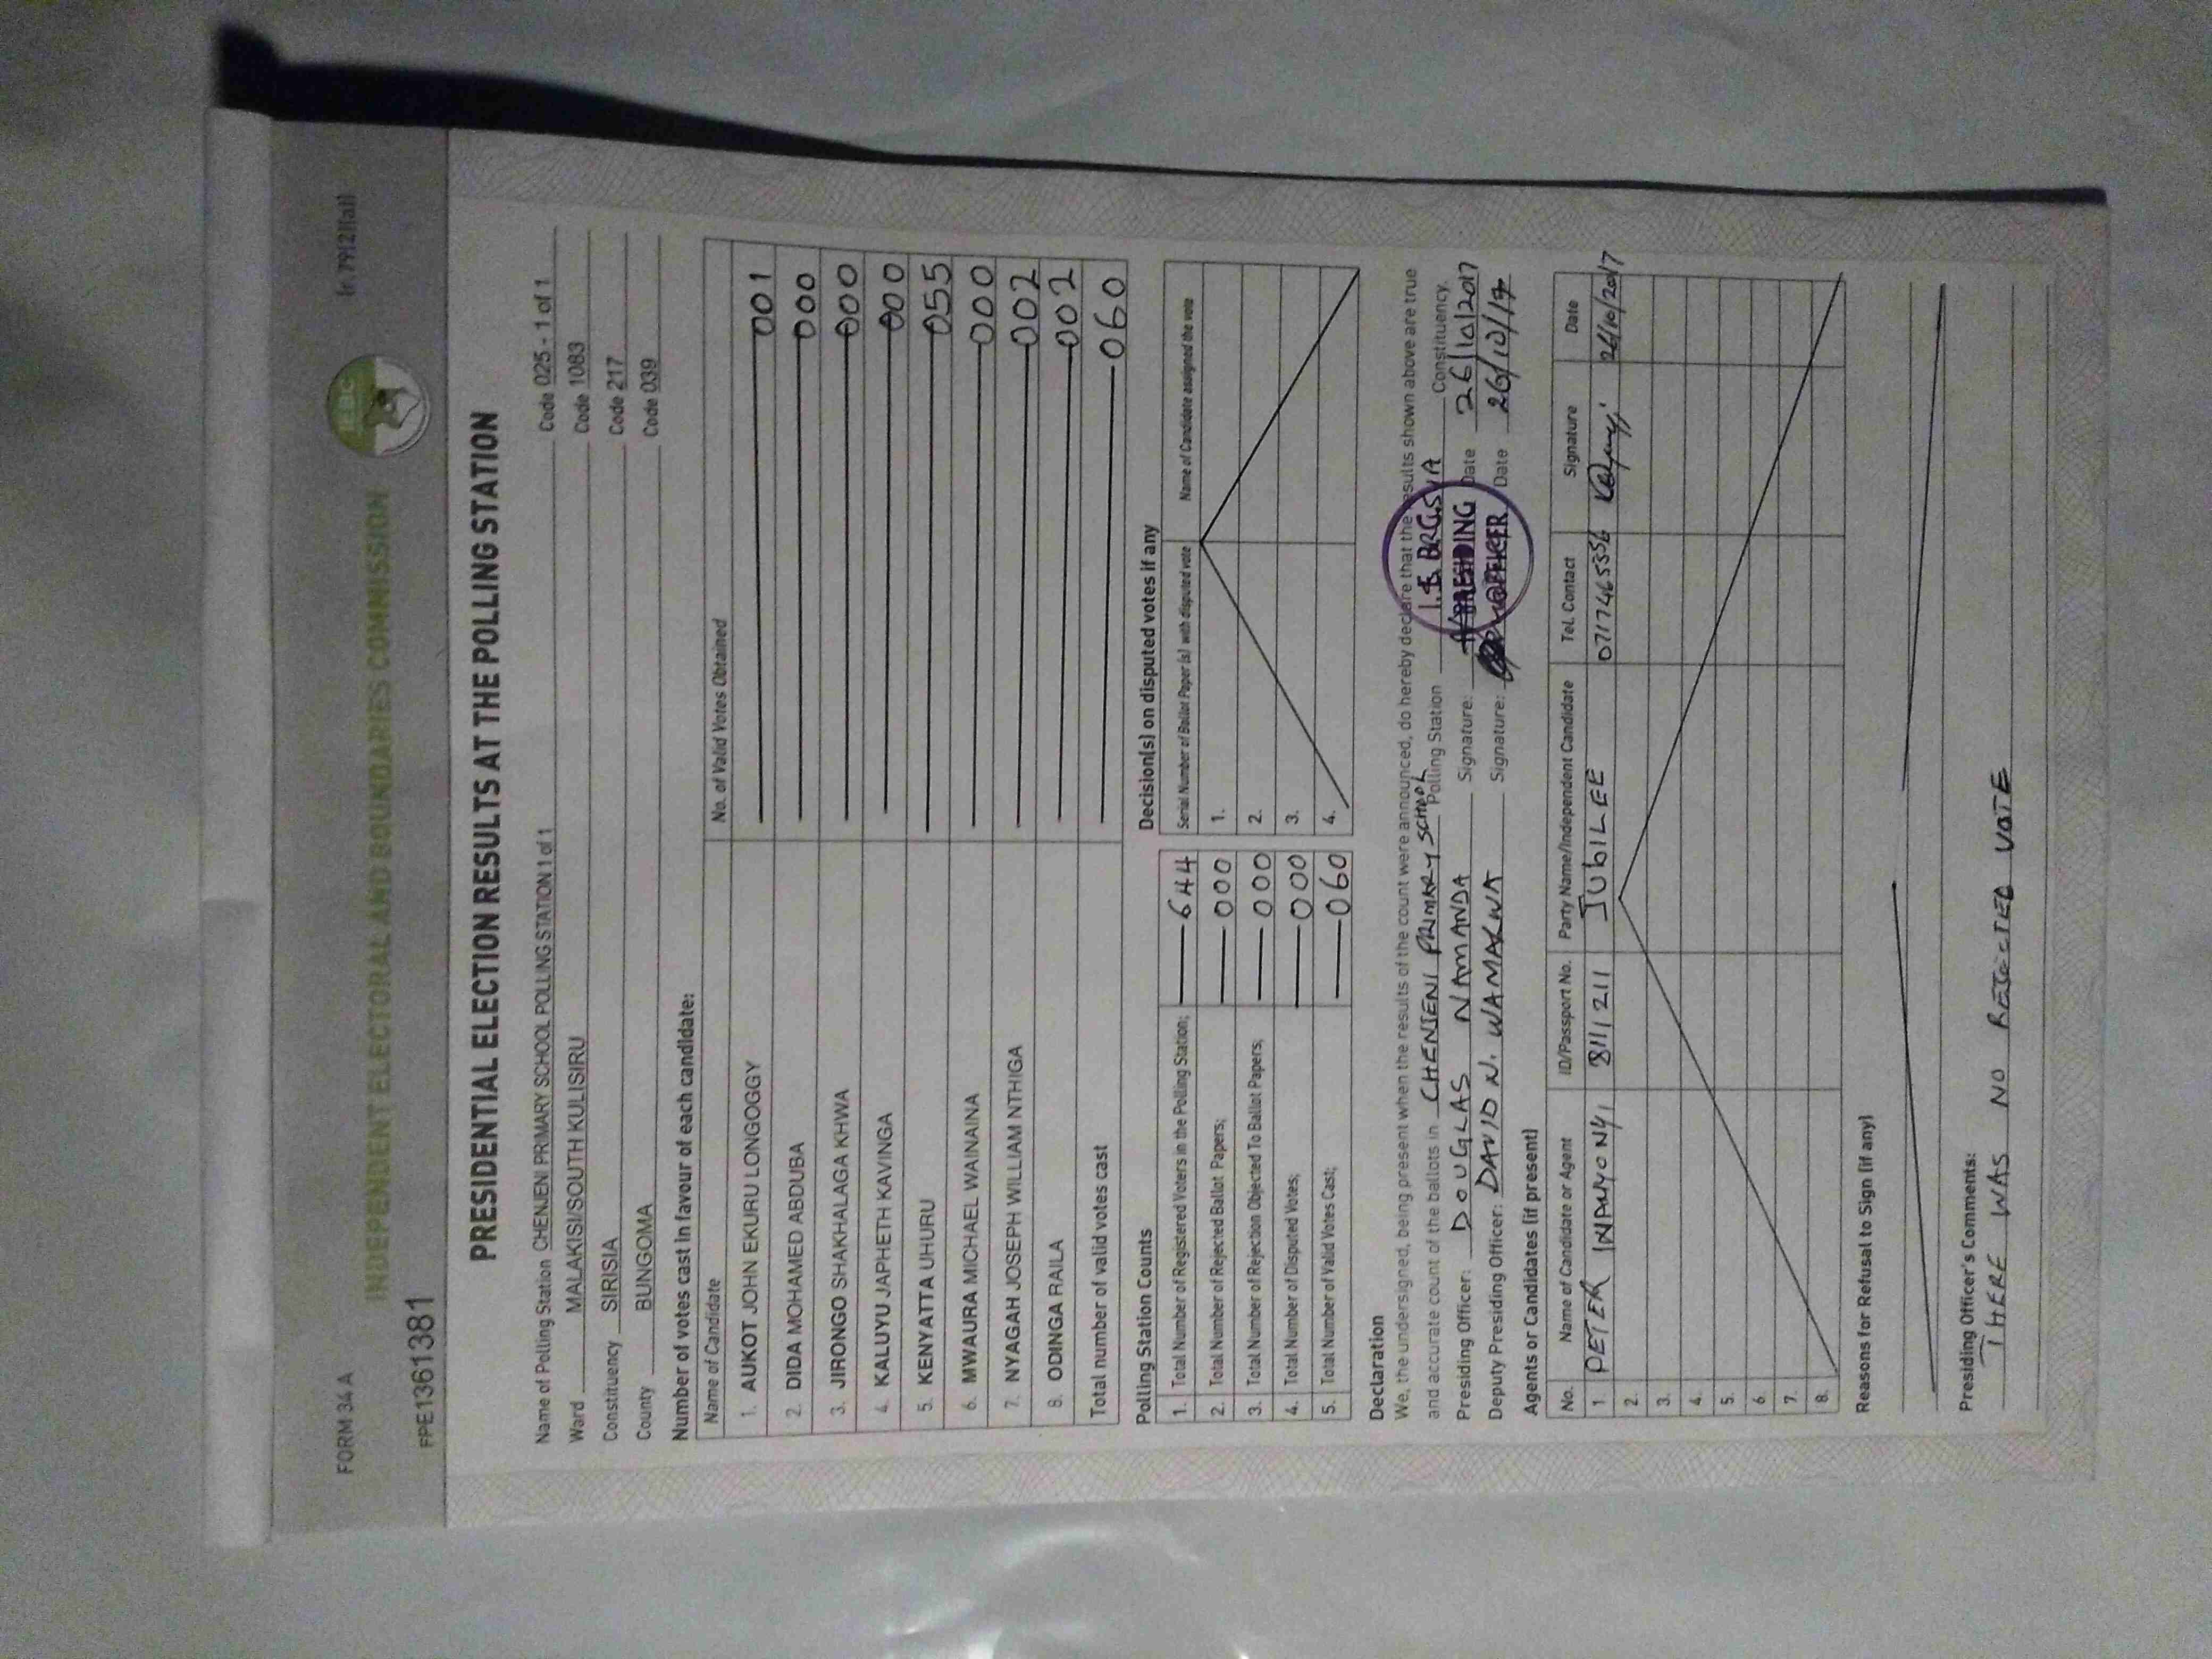 FORM 34 A
(r.79(2)(a))
INDEPENDENT ELECTORAL AND BOUNDARIES COMMISSION
IEBC
FPE1361381
PRESIDENTIAL ELECTION RESULTS AT THE POLLING STATION
Name of Polling Station CHENJENI PRIMARY SCHOOL POLLING STATION 1 of 1 Code 025 - 1 of 1
Ward MALAKISI/SOUTH KULISIRU Code 1083
Constituency SIRISIA Code 217
County BUNGOMA Code 039
Number of votes cast in favour of each candidate:
Name of Candidate No. of Valid Votes Obtained
1. AUKOT JOHN EKURU LONGOGGY 001
2. DIDA MOHAMED ABDUBA 000
3. JIRONGO SHAKHALAGA KHWA 000
4. KALUYU JAPHETH KAVINGA 000
5. KENYATTA UHURU 055
6. MWAURA MICHAEL WAINAINA 000
7. NYAGAH JOSEPH WILLIAM NTHIGA 002
8. ODINGA RAILA 002
Total number of valid votes cast 060
Polling Station Counts
1. Total Number of Registered Voters in the Polling Station; 644
2. Total Number of Rejected Ballot Papers; 000
3. Total Number of Rejection Objected To Ballot Papers; 000
4. Total Number of Disputed Votes; 000
5. Total Number of Valid Votes Cast; 060
Decision(s) on disputed votes if any
Serial Number of Ballot Paper (s) with disputed vote Name of Candidate assigned the vote
1.
2.
3.
4.
Declaration
We, the undersigned, being present when the results of the count were announced, do hereby declare that the results shown above are true
and accurate count of the ballots in CHENJENI PRIMARY SCHOOL Polling Station Constituency.
Presiding Officer: DOUGLAS NAMANDA Signature: Date 26/10/2017
Deputy Presiding Officer: DAVID N. WAMALWA Signature: Date 26/10/17
PRESIDING
OFFICER
Agents or Candidates (if present)
No. Name of Candidate or Agent ID/Passport No. Party Name/Independent Candidate Tel. Contact Signature Date
1. PETER INAMYONYI 8111211 JUBILEE 0717465356 26/10/2017
2.
3.
4.
5.
6.
7.
8.
Reasons for Refusal to Sign (if any)
Presiding Officer's Comments:
THERE WAS NO REJECTED VOTE